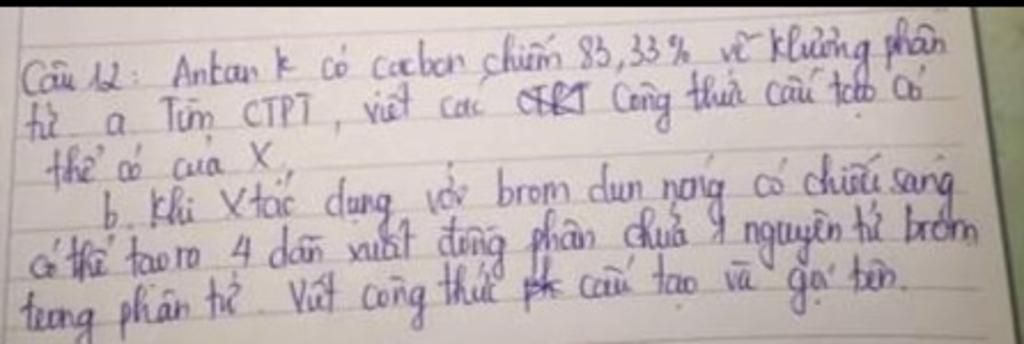 Câu 12: Ankan X có cacbon chiếm 83,33% về khường phân
tử a Tìm CTPT, viết các công thức cấu tạo có
thể có của X,
b. Khi X tác dụng với brom đun nóng có chiếu sáng
có thể tạo ra 4 dẫn xuất đồng phân chứa 1 nguyên tử brôm
trong phân tử. Viết công thức cấu tạo và gọi tên.